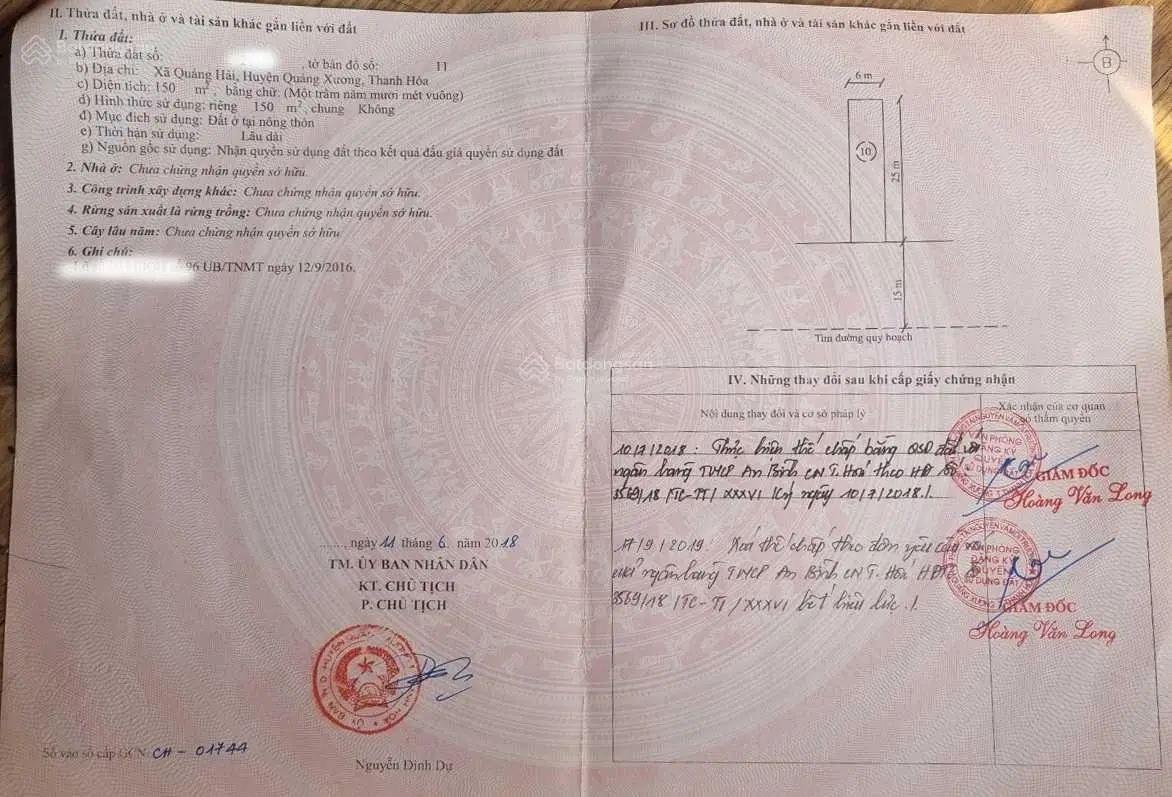 II. Thửa đất, nhà ở và tài sản khác gắn liền với đất
1. Thửa đất:
a) Thửa đất số: , tờ bản đồ số: 11
b) Địa chỉ: Xã Quảng Hải, Huyện Quảng Xương, Thanh Hóa
c) Diện tích: 150 m², bằng chữ: (Một trăm năm mươi mét vuông)
d) Hình thức sử dụng: riêng 150 m², chung Không
đ) Mục đích sử dụng: Đất ở tại nông thôn
e) Thời hạn sử dụng: Lâu dài
g) Nguồn gốc sử dụng: Nhận quyền sử dụng đất theo kết quả đấu giá quyền sử dụng đất
2. Nhà ở: Chưa chứng nhận quyền sở hữu.
3. Công trình xây dựng khác: Chưa chứng nhận quyền sở hữu.
4. Rừng sản xuất là rừng trồng: Chưa chứng nhận quyền sở hữu.
5. Cây lâu năm: Chưa chứng nhận quyền sở hữu.
6. Ghi chú:
96 UB/TNMT ngày 12/9/2016.
......, ngày 11 tháng 6 năm 2018
TM. ỦY BAN NHÂN DÂN
KT. CHỦ TỊCH
P. CHỦ TỊCH
Nguyễn Đình Dự
Số vào sổ cấp GCN: CH - 01744
III. Sơ đồ thửa đất, nhà ở và tài sản khác gắn liền với đất
B
6 m
10
25 m
15 m
Tim đường quy hoạch
Batdongsan
IV. Những thay đổi sau khi cấp giấy chứng nhận
Nội dung thay đổi và cơ sở pháp lý
Xác nhận của cơ quan
có thẩm quyền
10/7/2018: Thực hiện thế chấp bằng QSD đất với
ngân hàng TMCP An Bình CN T. Hoá theo HĐ số
3569/18/TC-TT/XXXVI ký ngày 10/7/2018./.
VĂN PHÒNG
ĐĂNG KÝ
QUYỀN
SỬ DỤNG ĐẤT
GIÁM ĐỐC
Hoàng Văn Long
17/9/2019: Xoá thế chấp theo đơn yêu cầu
của ngân hàng TMCP An Bình CN T. Hoá HĐTC
3569/18/TC-TT/XXXVI hết hiệu lực./.
VĂN PHÒNG
ĐĂNG KÝ
QUYỀN
SỬ DỤNG ĐẤT
GIÁM ĐỐC
Hoàng Văn Long